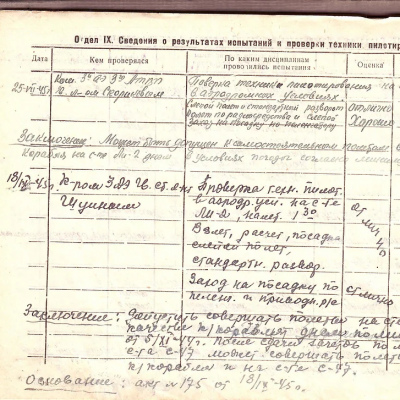 Отдел IX. Сведения о результатах испытаний и проверки техники пилотир
Дата Кем проверялся По каким дисциплинам проводились испытания Оценка
25-VII-45г. Ком. 3° АЭ 3° Проверка техники пилотирования на
в аэродромных условиях.
Слепой полет и стандартный разворот отлично
Заход на посадку по Хорошо
Заключение: Может быть допущен к самостоятельным полетам в
корабля на с-те Ли-2 днём в условиях погоды согласно
18/IX-45г. К-ром 3 АЭ Гв. ст. л-н Проверка техн. пилот.
Щукиным в аэродр. усл. на с-те
Ли-2, налет. 1 30 отлич
Взлет, расчет, посадка
слепой полет,
стандартн. развор.
Заход на посадку по отлично
пеленг. и приводн. р/с
Заключение: Допустить совершать полеты на с-те
качестве п/корабля днем по
от 5/XI-44г. после сдачи зачетов по
с-та С-47 может совершать полеты
п/корабля и на с-те С-47.
Основание: акт №175 от 18/IX-45г.